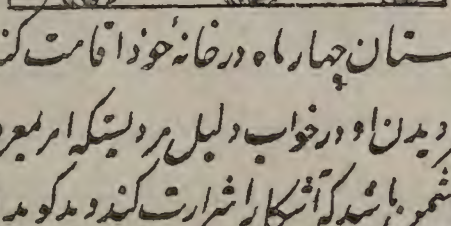 ستان چهار ماه در خانهٔ خود اقامت کند
و دیدن او در خواب دلیل مردیستکه امر بمعرو
دشمن باشد که آشکارا شرارت کند و بد گوید